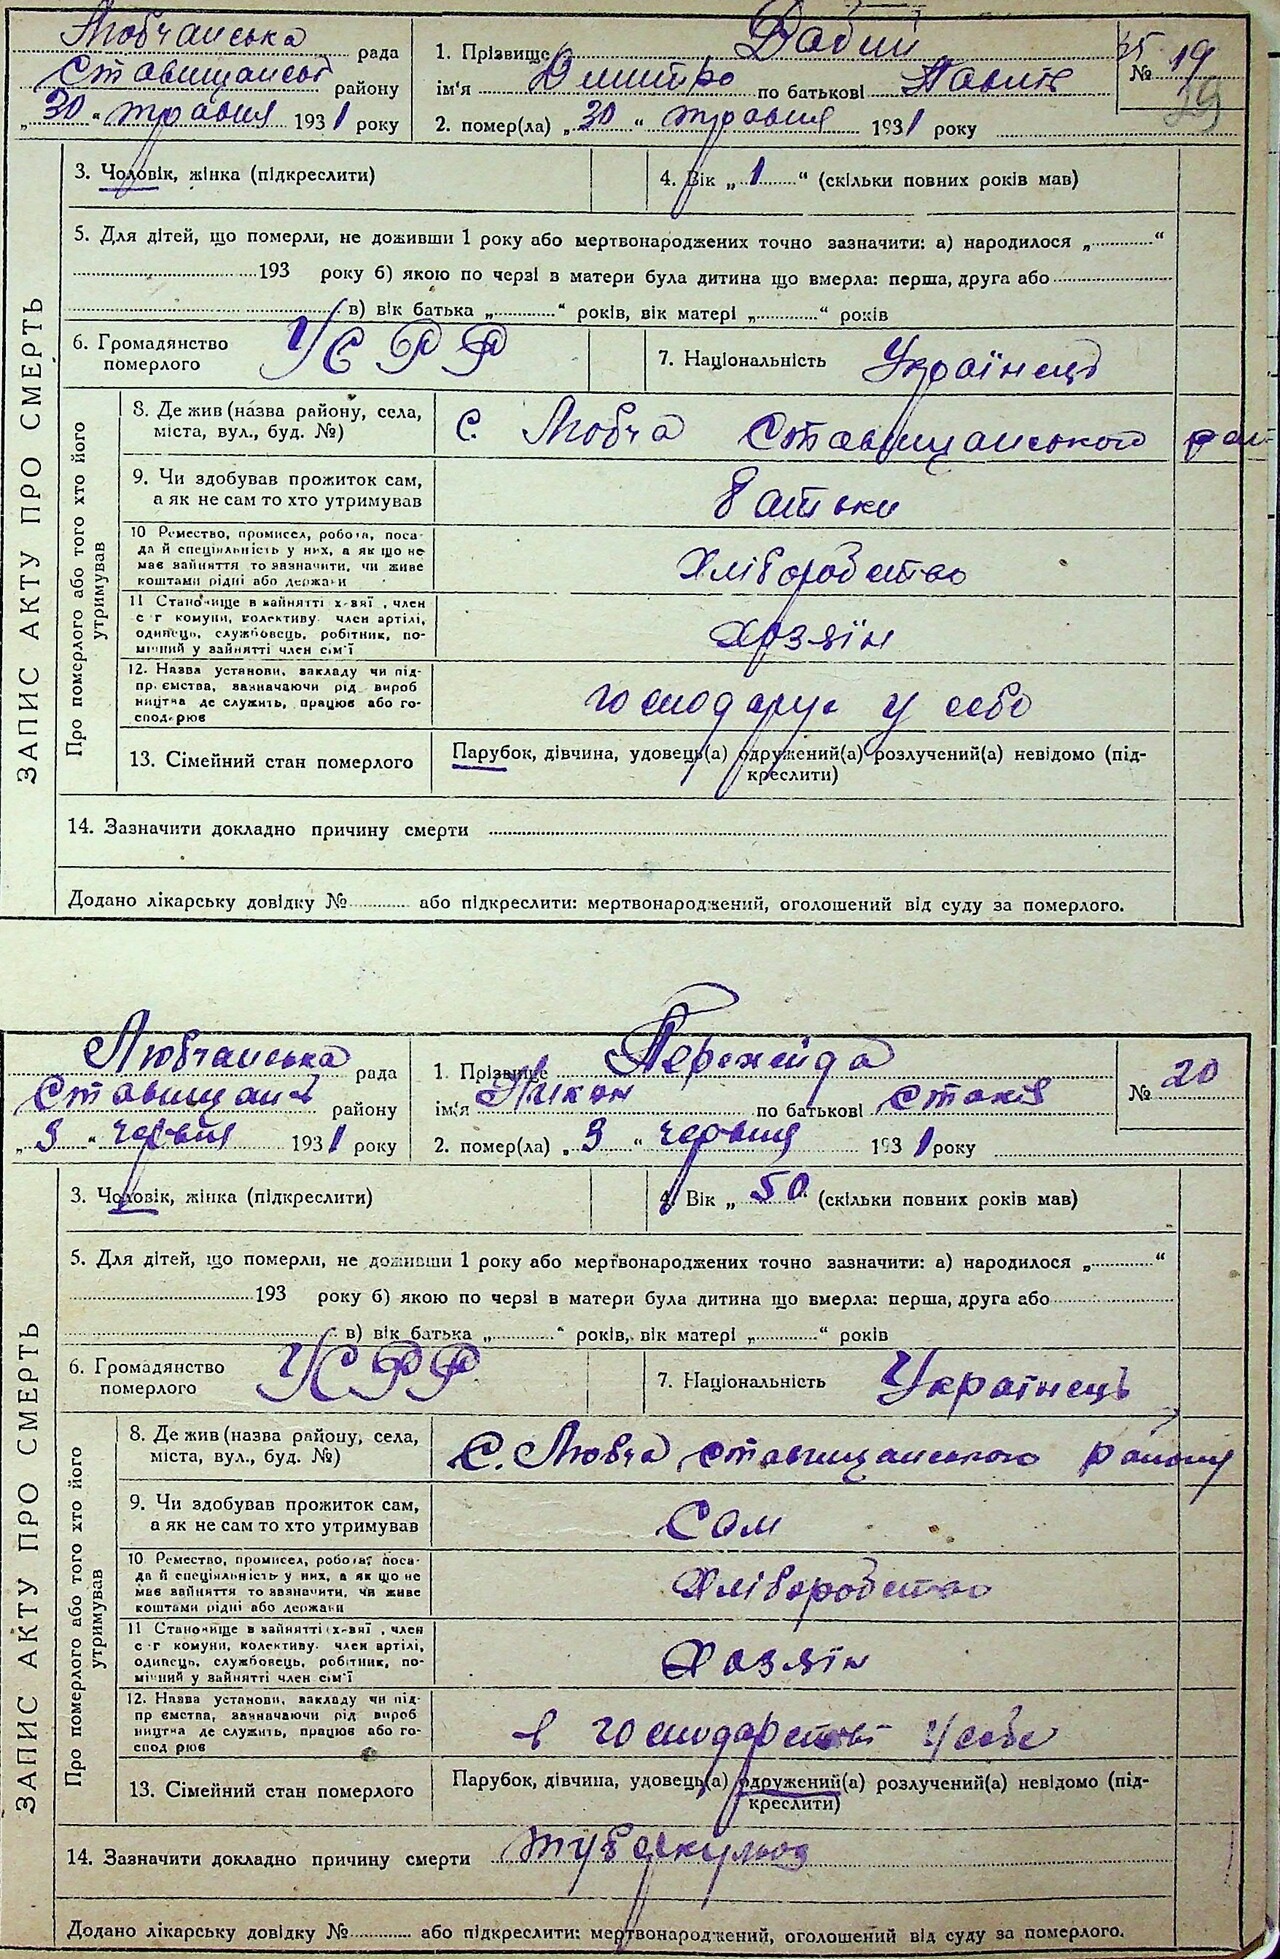 Любчанська рада
Ставищансь району
„30“ травня 1931 року
1. Прізвище Дабии
ім'я Дмитро по батькові Павлів
2. помер(ла) „30“ травня 1931 року
35
№ 19
29
3. Чоловік, жінка (підкреслити)
4. Вік „1“ (скільки повних років мав)
5. Для дітей, що померли, не доживши 1 року або мертвонароджених точно зазначити: а) народилося „ “
193 року б) якою по черзі в матери була дитина що вмерла: перша, друга або
в) вік батька „ “ років, вік матері „ “ років
6. Громадянство померлого УСРР
7. Національність Українець
ЗАПИС АКТУ ПРО СМЕРТЬ
Про померлого або того хто його утримував
8. Де жив (назва району, села,
міста, вул., буд. №)
с. Любча Ставищанського рай
9. Чи здобував прожиток сам,
а як не сам то хто утримував
батьки
10 Ремество, промисел, робота, поса-
да й спеціяльність у них, а як що не
має зайняття то зазначити, чи живе
коштами рідні або держави
Хліборобство
11 Становище в зайнятті х-вяї, член
с-г комуни, колективу член артілі,
одинець, службовець, робітник, по-
мічний у зайнятті член сім'ї
Хозяїн
12. Назва установи, закладу чи під-
приємства, зазначаючи рід вироб
ництва де служить, працює або го-
сподарює
господарує у себе
13. Сімейний стан померлого
Парубок, дівчина, удовець(а) одружений(а) розлучений(а) невідомо (під-
креслити)
14. Зазначити докладно причину смерти
Додано лікарську довідку № або підкреслити: мертвонароджений, оголошений від суду за померлого.
Любчанська рада
Ставищан району
„3“ червня 1931 року
1. Прізвище Пережейда
ім'я Никон по батькові
2. помер(ла) „3“ червня 1931 року
№ 20
3. Чоловік, жінка (підкреслити)
4. Вік „50“ (скільки повних років мав)
5. Для дітей, що померли, не доживши 1 року або мертвонароджених точно зазначити: а) народилося „ “
193 року б) якою по черзі в матери була дитина що вмерла: перша, друга або
в) вік батька „ “ років, вік матері „ “ років
6. Громадянство померлого УСРР
7. Національність Українець
ЗАПИС АКТУ ПРО СМЕРТЬ
Про померлого або того хто його утримував
8. Де жив (назва району, села,
міста, вул., буд. №)
С. Любча Ставищанського району
9. Чи здобував прожиток сам,
а як не сам то хто утримував
Сам
10 Ремество, промисел, робота, поса-
да й спеціяльність у них, а як що не
має зайняття то зазначити, чи живе
коштами рідні або держави
Хліборобство
11 Становище в зайнятті х-вяї, член
с-г комуни, колективу член артілі,
одинець, службовець, робітник, по-
мічний у зайнятті член сім'ї
Хозяїн
12. Назва установи, закладу чи під-
приємства, зазначаючи рід вироб
ництва де служить, працює або го-
сподарює
в господарстві у себе
13. Сімейний стан померлого
Парубок, дівчина, удовець(а) одружений(а) розлучений(а) невідомо (під-
креслити)
14. Зазначити докладно причину смерти туберкульоз
Додано лікарську довідку № або підкреслити: мертвонароджений, оголошений від суду за померлого.